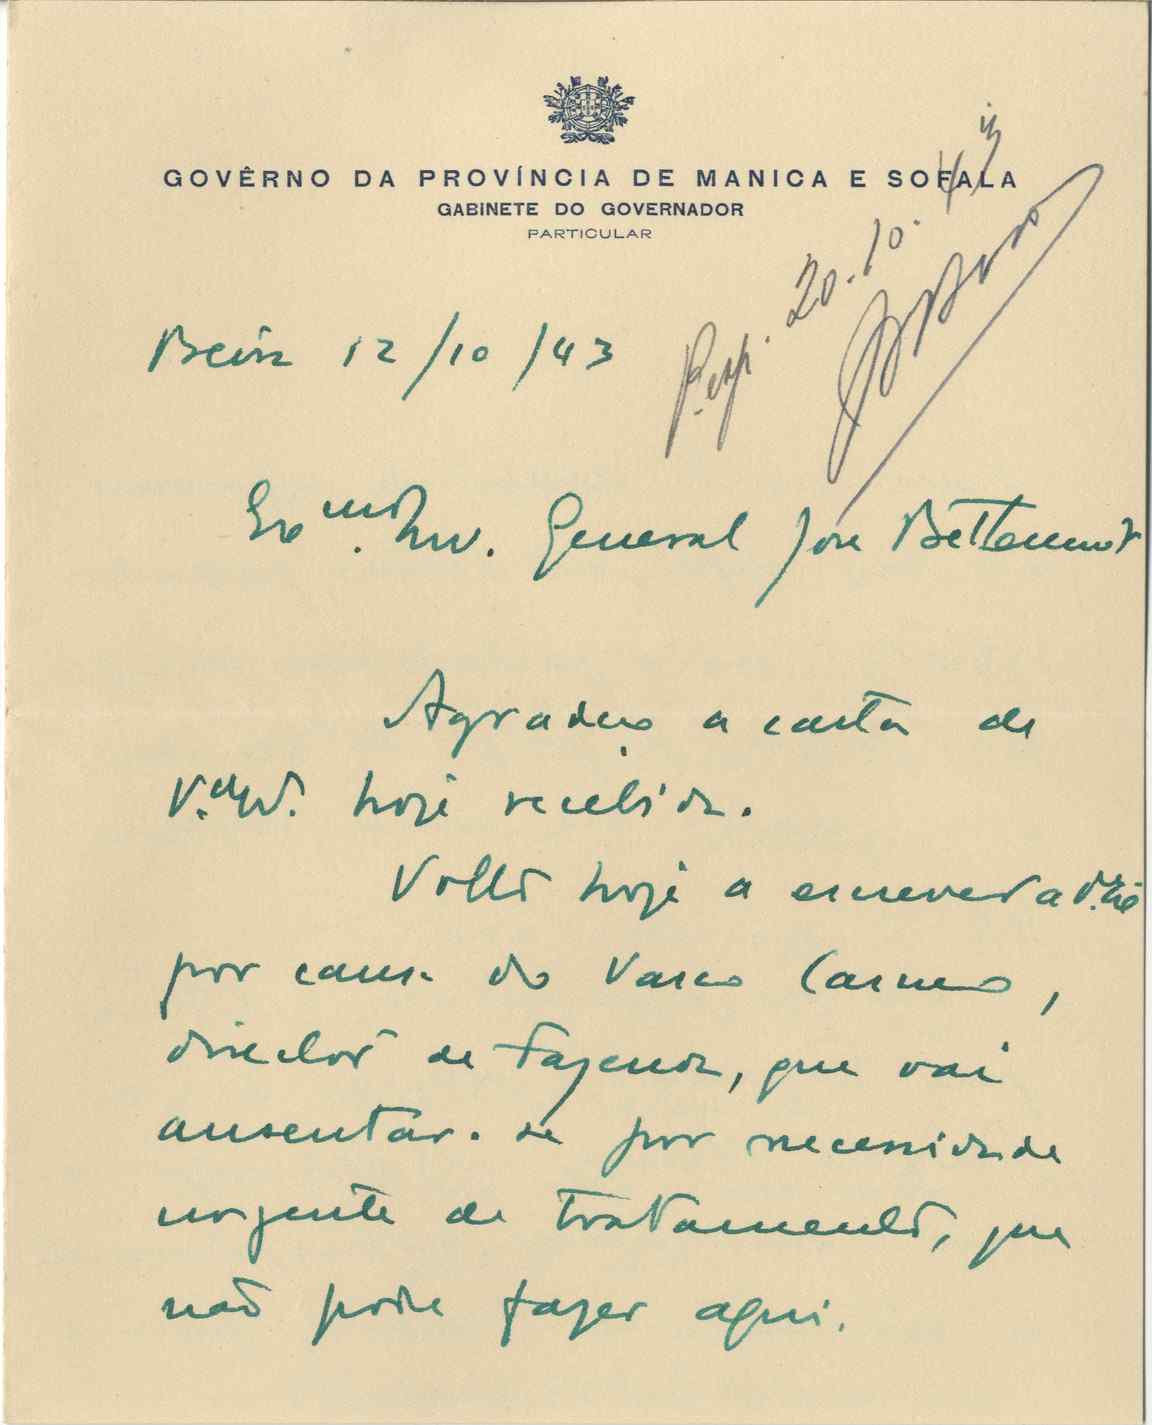 GOVÊRNO DA PROVÍNCIA DE MANICA E SOFALA
GABINETE DO GOVERNADOR
PARTICULAR
Resp. 20.10.43
Beira 12/10/43
Exmo. Snr. General José Bettencourt
Agradeço a carta de
V. Exª. hoje recebida.
Volto hoje a escrever a V. Exª
por causa do Vasco Carneiro,
director de Fazenda, que vai
ausentar-se por necessidade
urgente de tratamento, que
não pode fazer aqui.